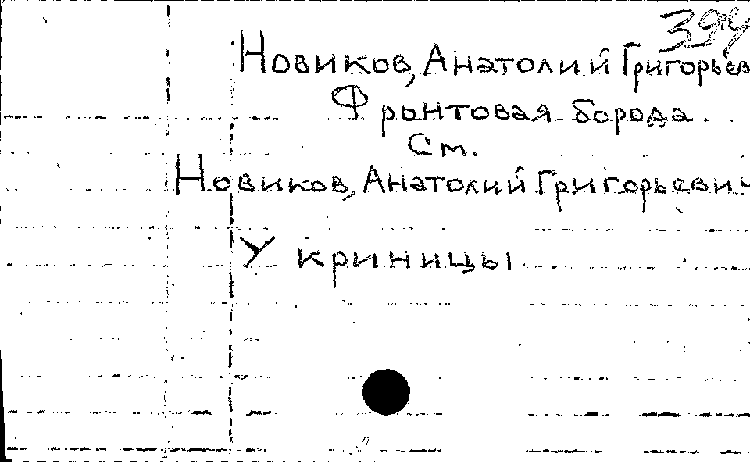 394
Новиков, Анатолий Григорьев
Фронтовая борода
См.
Новиков, Анатолий Григорьевич
У криницы